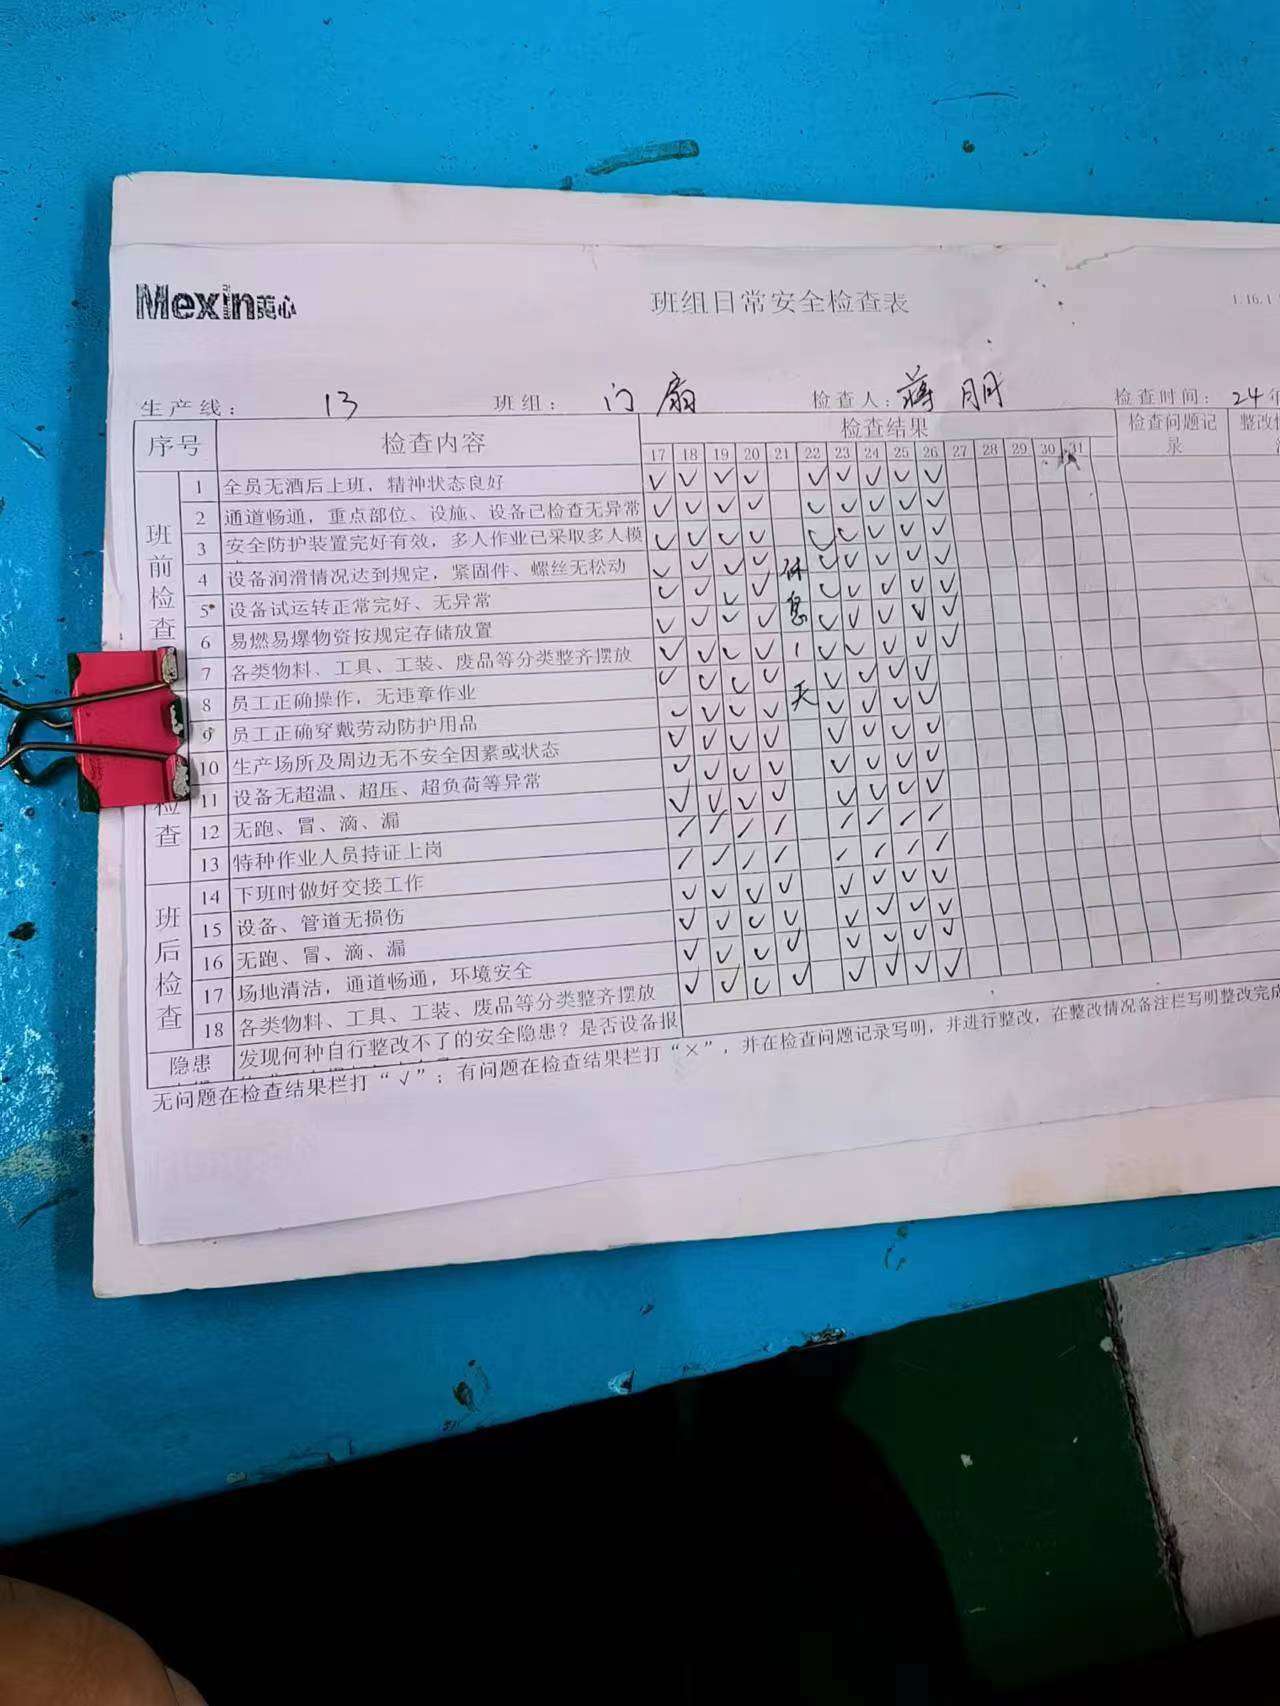 Mexin美心
班组日常安全检查表
1.16.1
生产线： 13 班组： 门扇 检查人：蒋朋 检查时间：24年
序号 检查内容 检查结果 检查问题记录
17 18 19 20 21 22 23 24 25 26 27 28 29 30 31
班前检查
1 全员无酒后上班，精神状态良好 √ √ √ √ √ √ √ √ √
2 通道畅通，重点部位、设施、设备已检查无异常 √ √ √ √ √ √ √ √ √
3 安全防护装置完好有效，多人作业已采取多人模 √ √ √ √ √ √ √ √ √
4 设备润滑情况达到规定，紧固件、螺丝无松动 √ √ √ √ √ √ √ √ √
5 设备试运转正常完好、无异常 √ √ √ √ √ √ √ √ √
6 易燃易爆物资按规定存储放置 √ √ √ √ √ √ √ √ √
休息1天
7 各类物料、工具、工装、废品等分类整齐摆放 √ √ √ √ √ √ √ √ √
8 员工正确操作，无违章作业 √ √ √ √ √ √ √ √
9 员工正确穿戴劳动防护用品 √ √ √ √ √ √ √ √
10 生产场所及周边无不安全因素或状态 √ √ √ √ √ √ √ √
检查
11 设备无超温、超压、超负荷等异常 √ √ √ √ √ √ √ √
12 无跑、冒、滴、漏 / / / / / / / /
13 特种作业人员持证上岗 / / / / / / / /
班后检查
14 下班时做好交接工作 √ √ √ √ √ √ √ √
15 设备、管道无损伤 √ √ √ √ √ √ √ √
16 无跑、冒、滴、漏 √ √ √ √ √ √ √ √
17 场地清洁，通道畅通，环境安全 √ √ √ √ √ √ √ √
18 各类物料、工具、工装、废品等分类整齐摆放
隐患 发现何种自行整改不了的安全隐患？是否设备报
无问题在检查结果栏打“√”；有问题在检查结果栏打“×”，并在检查问题记录写明，并进行整改，在整改情况备注栏写明整改完成